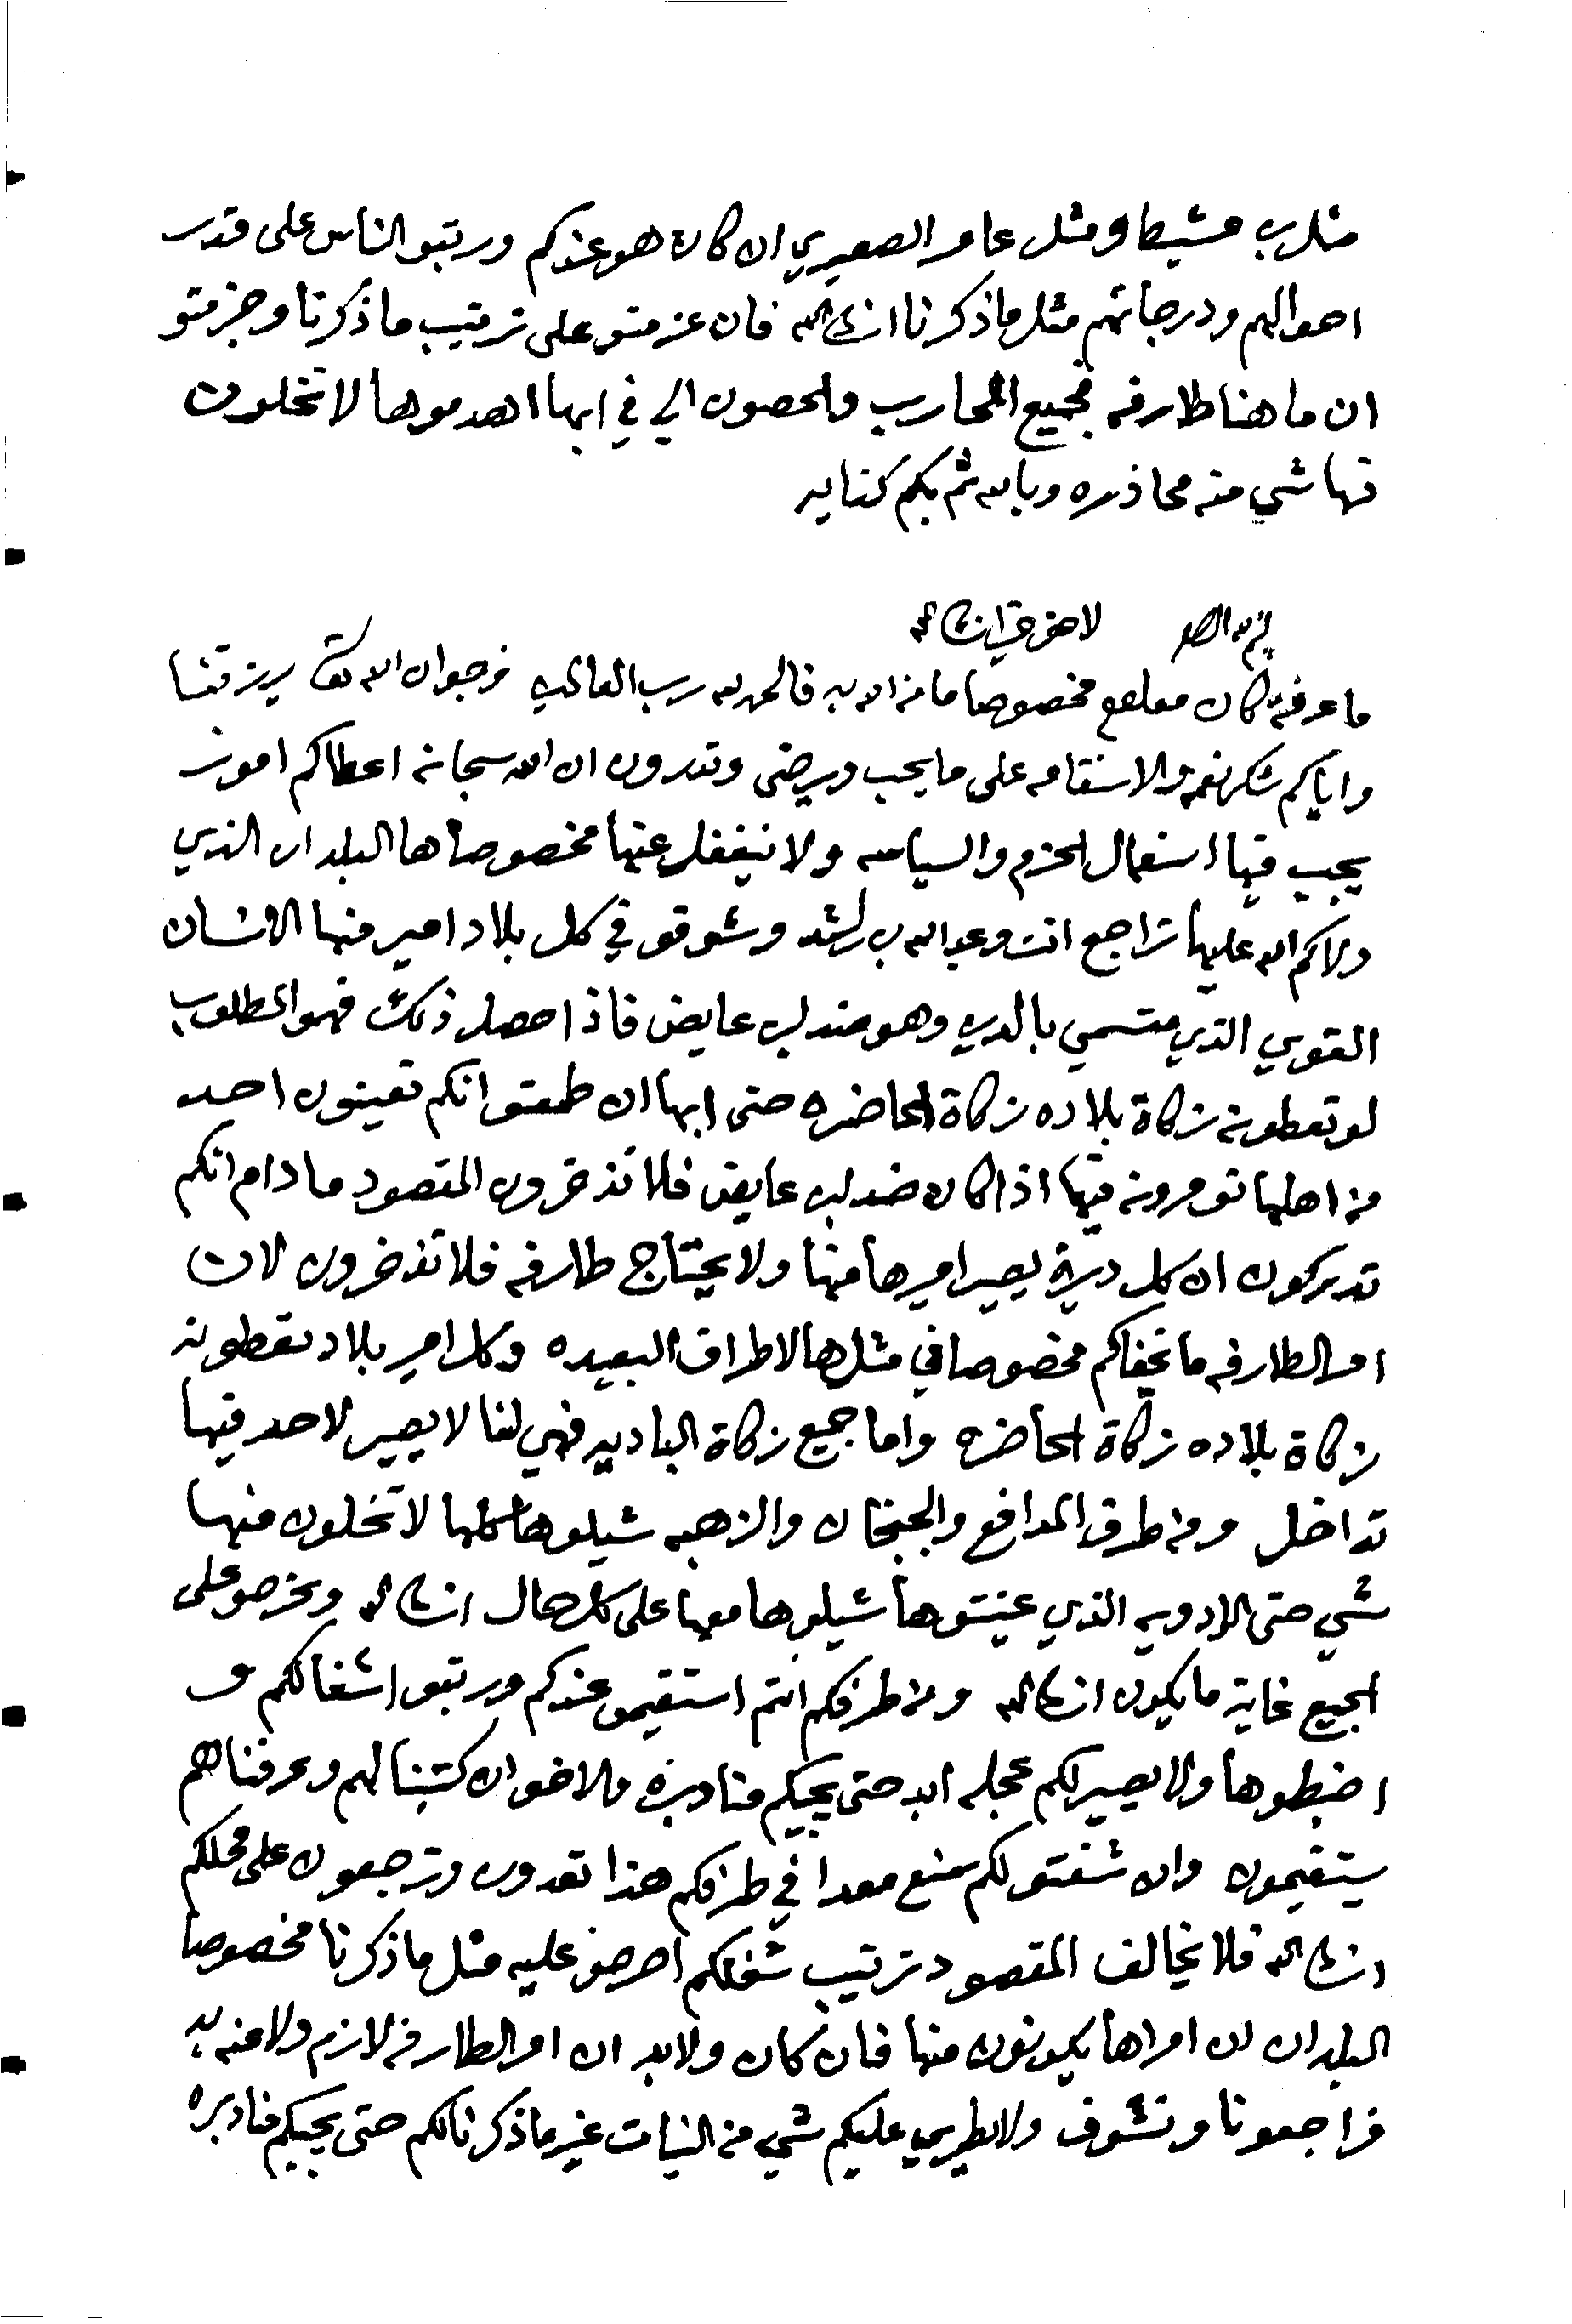 مثل بن مشيط ومثل عامر الصعيري ان كان هو عندكم ورتبو الناس على قدر
احوالهم ودرجاتهم مثل ما ذكرنا انشاالله فان عزمتو على ترتيب ما ذكرنا وجزمتو
ان ما هنا طارفه فجميع المحارب والحصون الي في ابها اهدموها لا تخلون
فيها شي منه محاذره وبالله ثم بكم كفايه
لاحق خير انشاالله
ما عرفت كان معلوم مخصوصا ما من الله به فالحمد لله رب العالمين نرجوا ان الله تعالى يرزقنا
واياكم شكر نعمه والاستقامه على ما يحب ويرضى وتدرون ان الله سبحانه اعطاكم امور
يجب فيها استعمال الحزم والسياسه ولا ينغفل عنها مخصوصا ها البلدان الذي
ولاكم الله عليها تراجع انت وعبدالله بن راشد وشوفو في كل بلاد امير منها الانسان
القوي الذي متسمي بالدين وهو ضد لبن عايض فاذا حصل ذلك فهو المطلوب
لو تعطونه زكاة بلاده زكاة الحاضره حتى ابها ان طمعتو انكم تعينون احد
من اهلها تومرونه فيها اذا كان ضد لبن عايض فلا تذخرون المقصود ما دام انكم
تدركون ان كل ديرة يصير اميرها منها ولا يحتاج طارفه فلا تذخرون لان
امر الطارفه ما يخفاكم مخصوصا في مثل ها الاطراف البعيده وكل امير بلاد تعطونه
زكاة بلاده زكاة الحاضره واما جميع زكاة الباديه فهي لنا لا يصير لاحد فيها
تداخل ومن طرف المدافع والجبخان والزهبه شيلوها كلها لا تخلون منها
شي حتى الادويه الذي عينتوها شيلوها معها على كل حال انشاالله وتحرصو على
الجميع غاية ما يكون انشاالله ومن طرفكم انتم استقيمو عندكم ورتبو اشغالكم و
اضبطوها ولا يصير لكم عجله ابد حتى يجيكم منا دبره والاخوان كتبنا لهم وعرفناهم
يستقيمون وان شفتو لكم سنع معدا في طرفكم هذا تعدون وترجعون على محلكم
انشاالله فلا يخالف المقصود ترتيب شغلكم احرصو عليه مثل ما ذكرنا مخصوصا
البلدان ان امراها يكونون منها فان كان ولابد ان امر الطارفه لازم ولا عنه بد
فراجعونا ونشوف ولا يطري عليكم شي من النيات غير ما ذكرنا لكم حتى يجيكم منا دبره